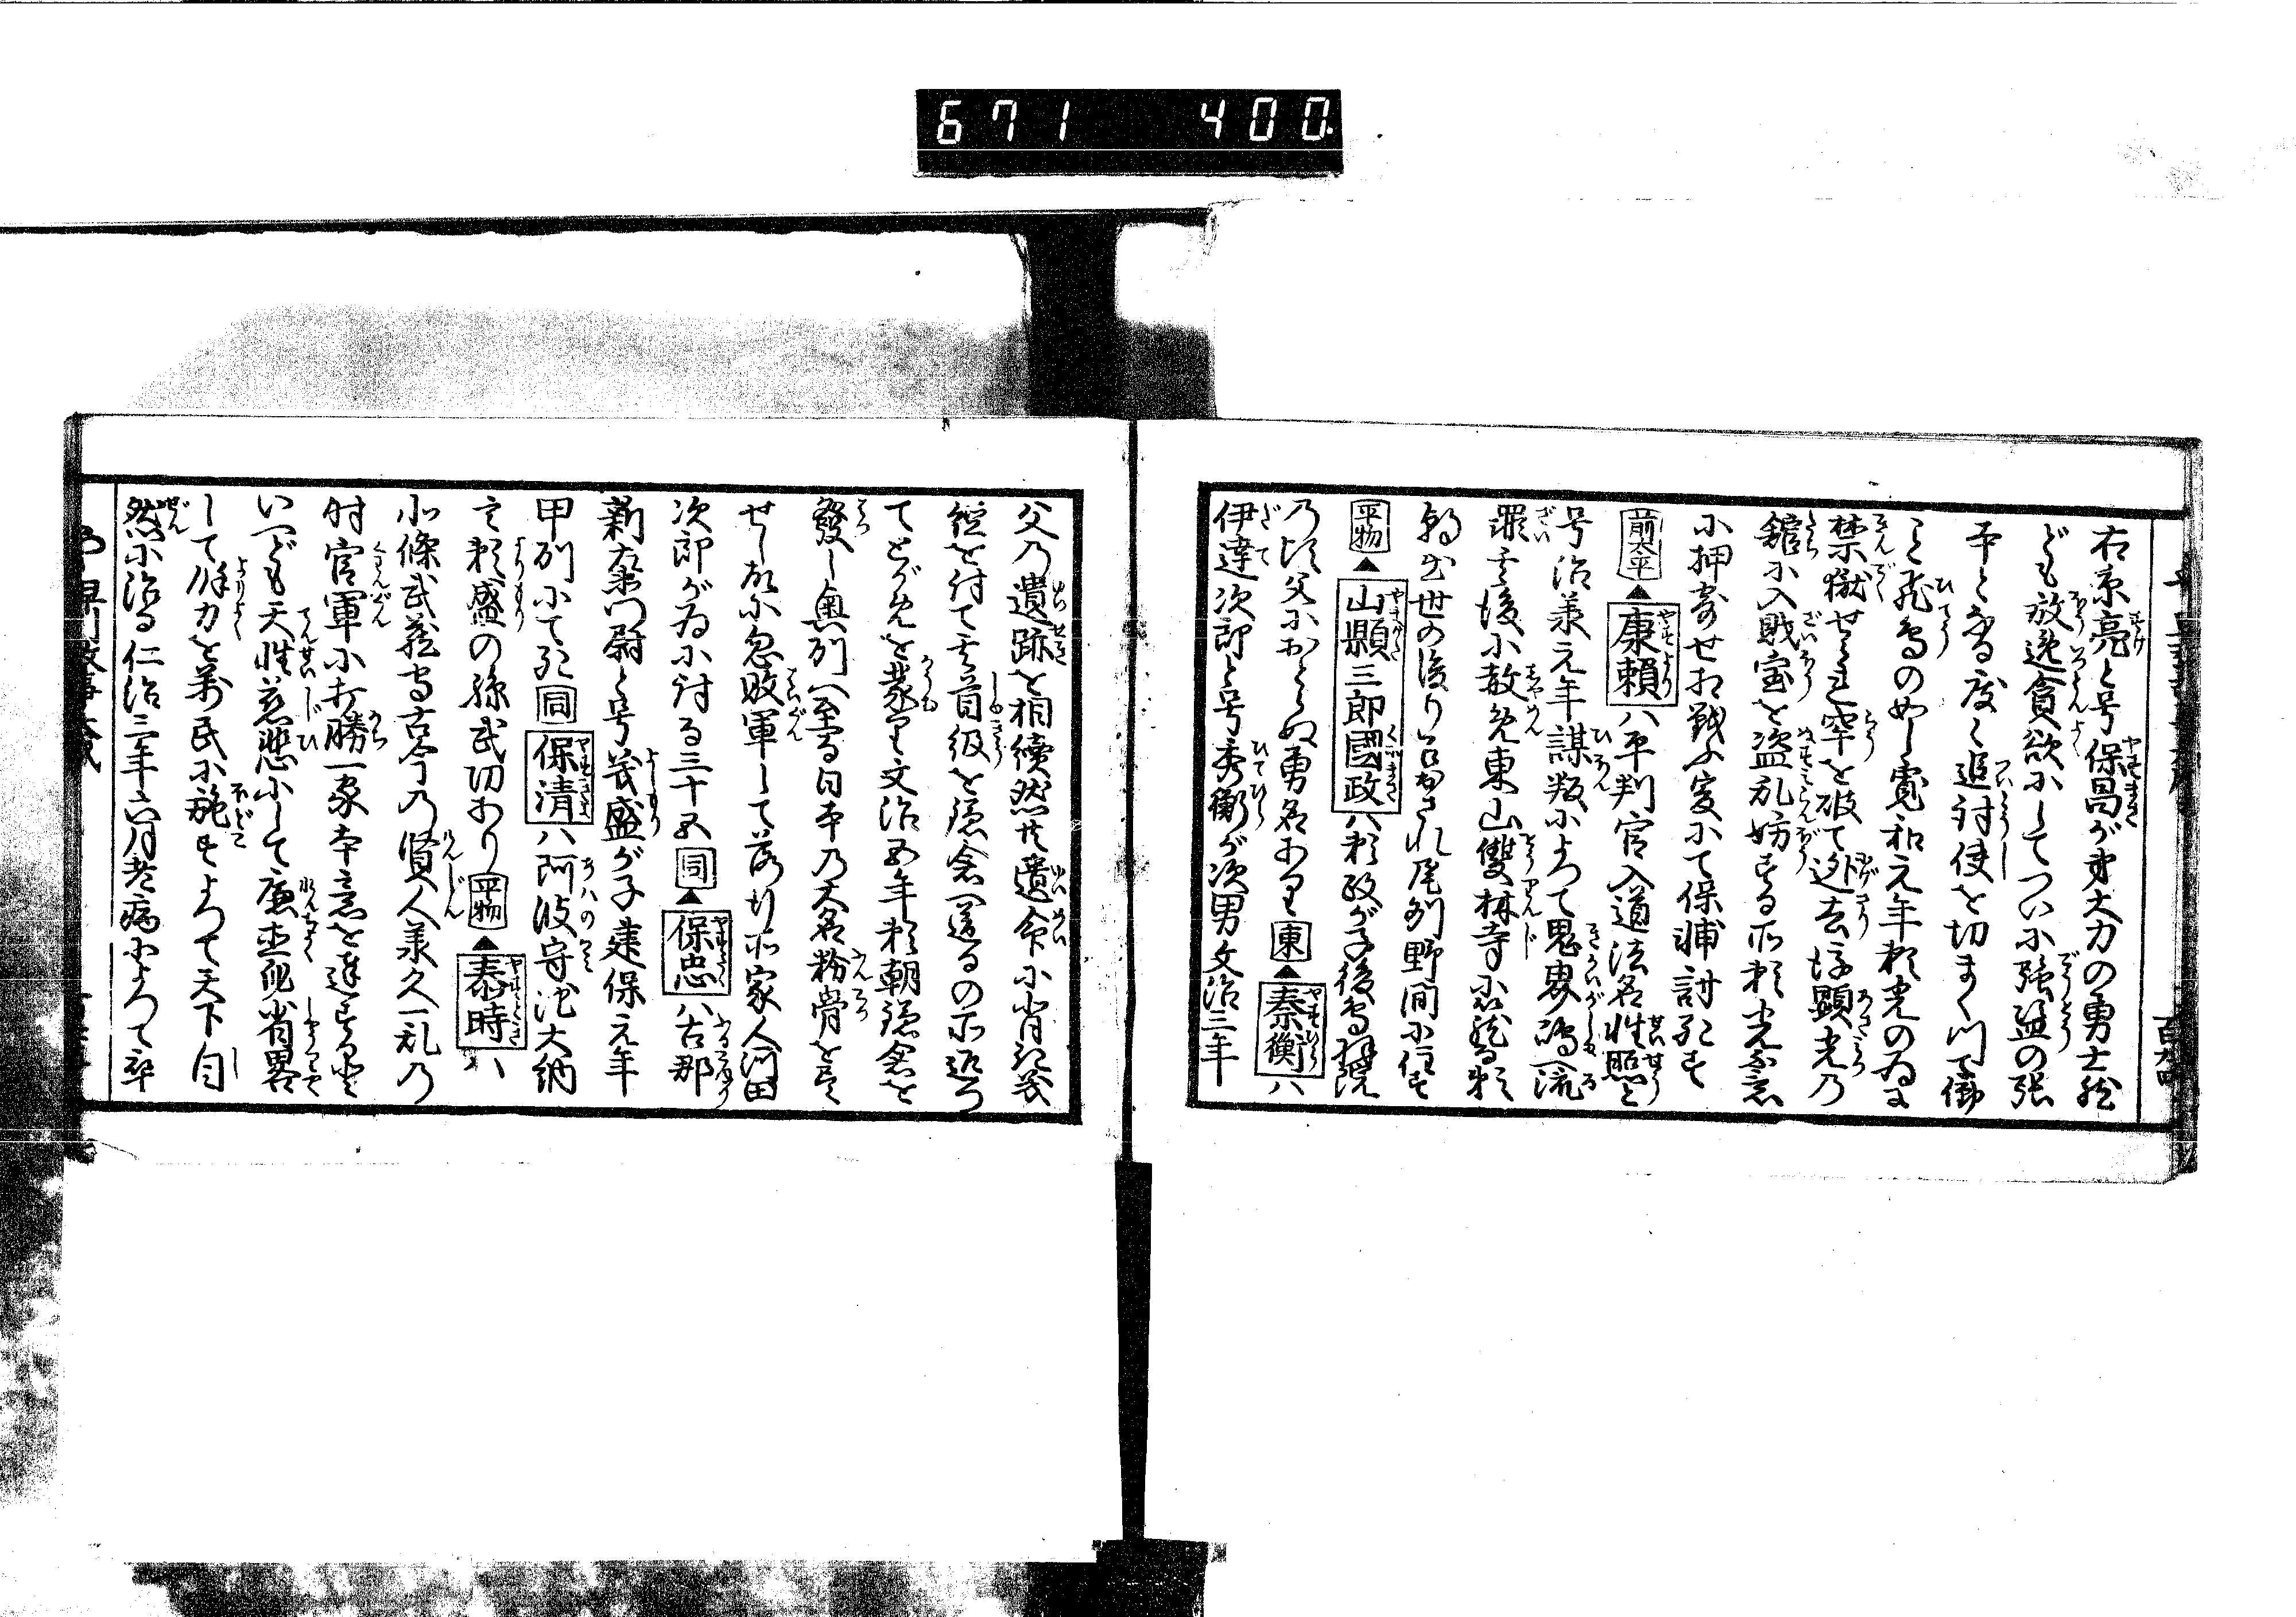 671 400
右京亮と号保昌が弟大力の勇士然
ども放逸貪欲にしてついに強盗の張
本となる度々追討使を切まくつて働
こと飛鳥のめし寛和元年頼光のゐに
禁獄せられ窂を破て迯去得顕光乃
館に入財宝を盗乱妨する所頼光
に押寄せ相戦ふ爰にて保輔討死す
前太平▲康頼ハ平判官入道法名性照と
号治承元年謀叛によつて鬼界が嶋へ流
罪其後に赦免東山雙林寺に
世の後り召出され尾州野間に住す
平物▲山縣三郎國政ハ頼政が子後鳥羽院
乃比父におとらぬ勇名あり東▲泰衡ハ
伊達次郎と号秀衡が次男文治三年
父乃遺跡を相続然共遺命に背記義
経を討て其首級を鎌倉へ送るの所返つ
てとがめを蒙り文治五年頼朝鎌倉を
發し奥州へ至る日本乃大名粉骨を尽
せし故に忽敗軍して落行所家人河田
次郎がゐに討る三十五同▲保忠ハ古郡
新左衛門尉と号義盛が子建保元年
甲州にて死同保清ハ阿波守池大納
言頼盛の孫武功あり平物▲泰時ハ
北條武蔵守古今乃賢人承久一乱乃
時官軍に打勝一家本意を達すると
いへども天性慈悲にして廉直
して餘力を万民に施すよつて天下自
然に治る仁治三年六月老病によつて卒